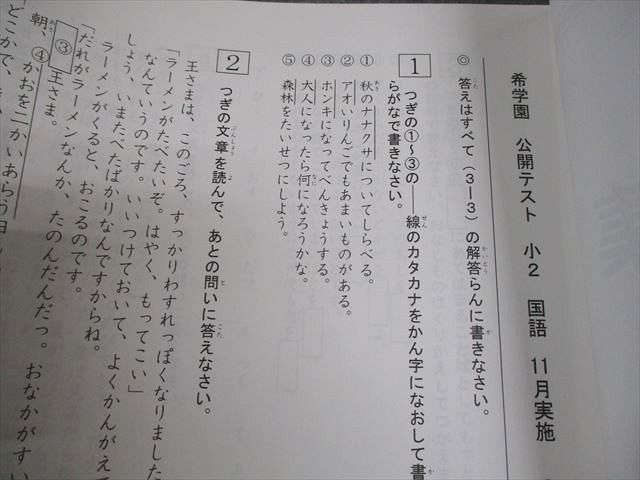 希学園 公開テスト 小2 国語 11月実施
◎ 答えはすべて（3―3）の解答らんに書きなさい。
1 つぎの①～③の――線のカタカナをかん字になおして書
らがなで書きなさい。
① 秋のナナクサについてしらべる。
② アオいりんごでもあまいものがある。
③ ホンキになってべんきょうする。
④ 大人になったら何になろうかな。
⑤ 森林をたいせつにしよう。
2 つぎの文章を読んで、あとの問いに答えなさい。
王さまは、このごろ、すっかりわすれっぽくなりました
「ラーメンがたべたいぞ。はやく、もってこい」
なんていうのです。いいつけておいて、よくかんがえて
しょう、いまたべたばかりなんですからね。
ラーメンがくると、おこるのです。
「だれがラーメンなんか、たのんだんだっ。おなかがすい
③王さま。
朝、④かおを二かいあらう日
どこかで、